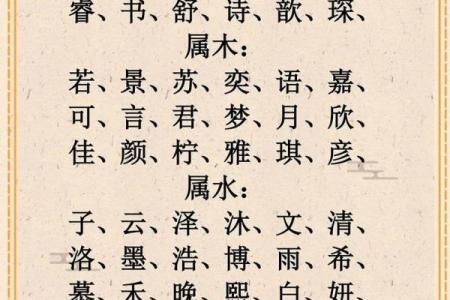 睿、书、舒、诗、歆、琛、
属木：
若、景、苏、奕、语、嘉、
可、言、君、梦、月、欣、
佳、颜、柠、雅、琪、彦、
属水：
子、云、泽、沐、文、清、
洛、墨、浩、博、雨、希、
慕、禾、晚、熙、白、妍、